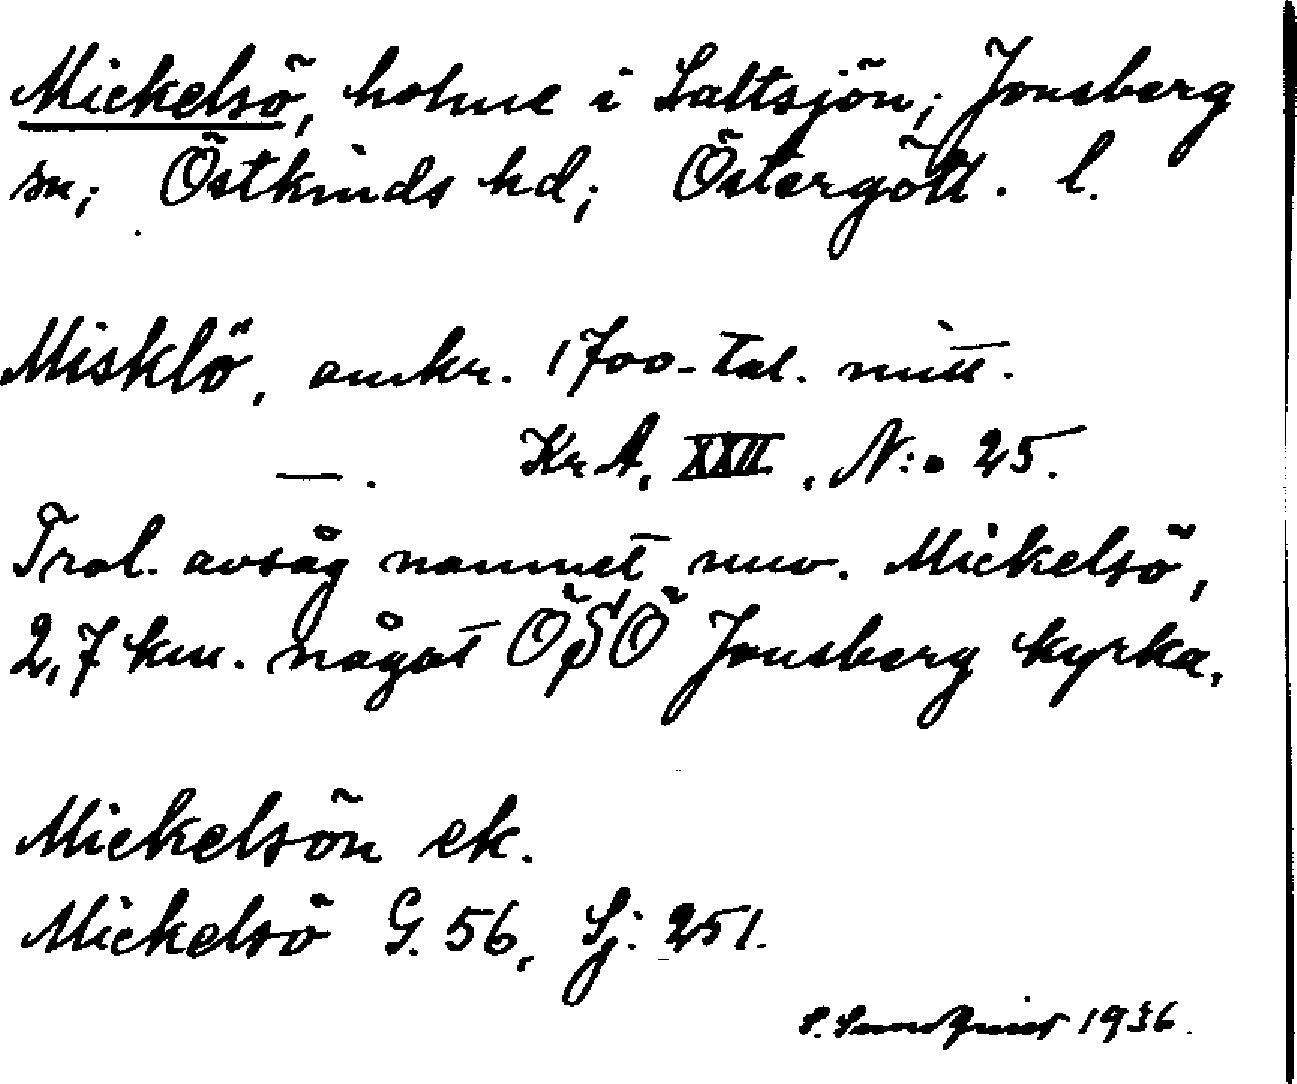 Mickelsö, holme i Saltsjön; Jonsberg
sn; Östkinds hd; Östergötl. l.
Misklö, omkr. 1700-tal. mitt.
—. Kr A, XXII, N:o 25.
Trol. avsåg namnet nuv. Mickelsö,
2,7 km. något ÖSÖ Jonsberg kyrka.
Mickelsön ek.
Mickelsö G. 56, Sj: 251.
S. Sundquist 1936.